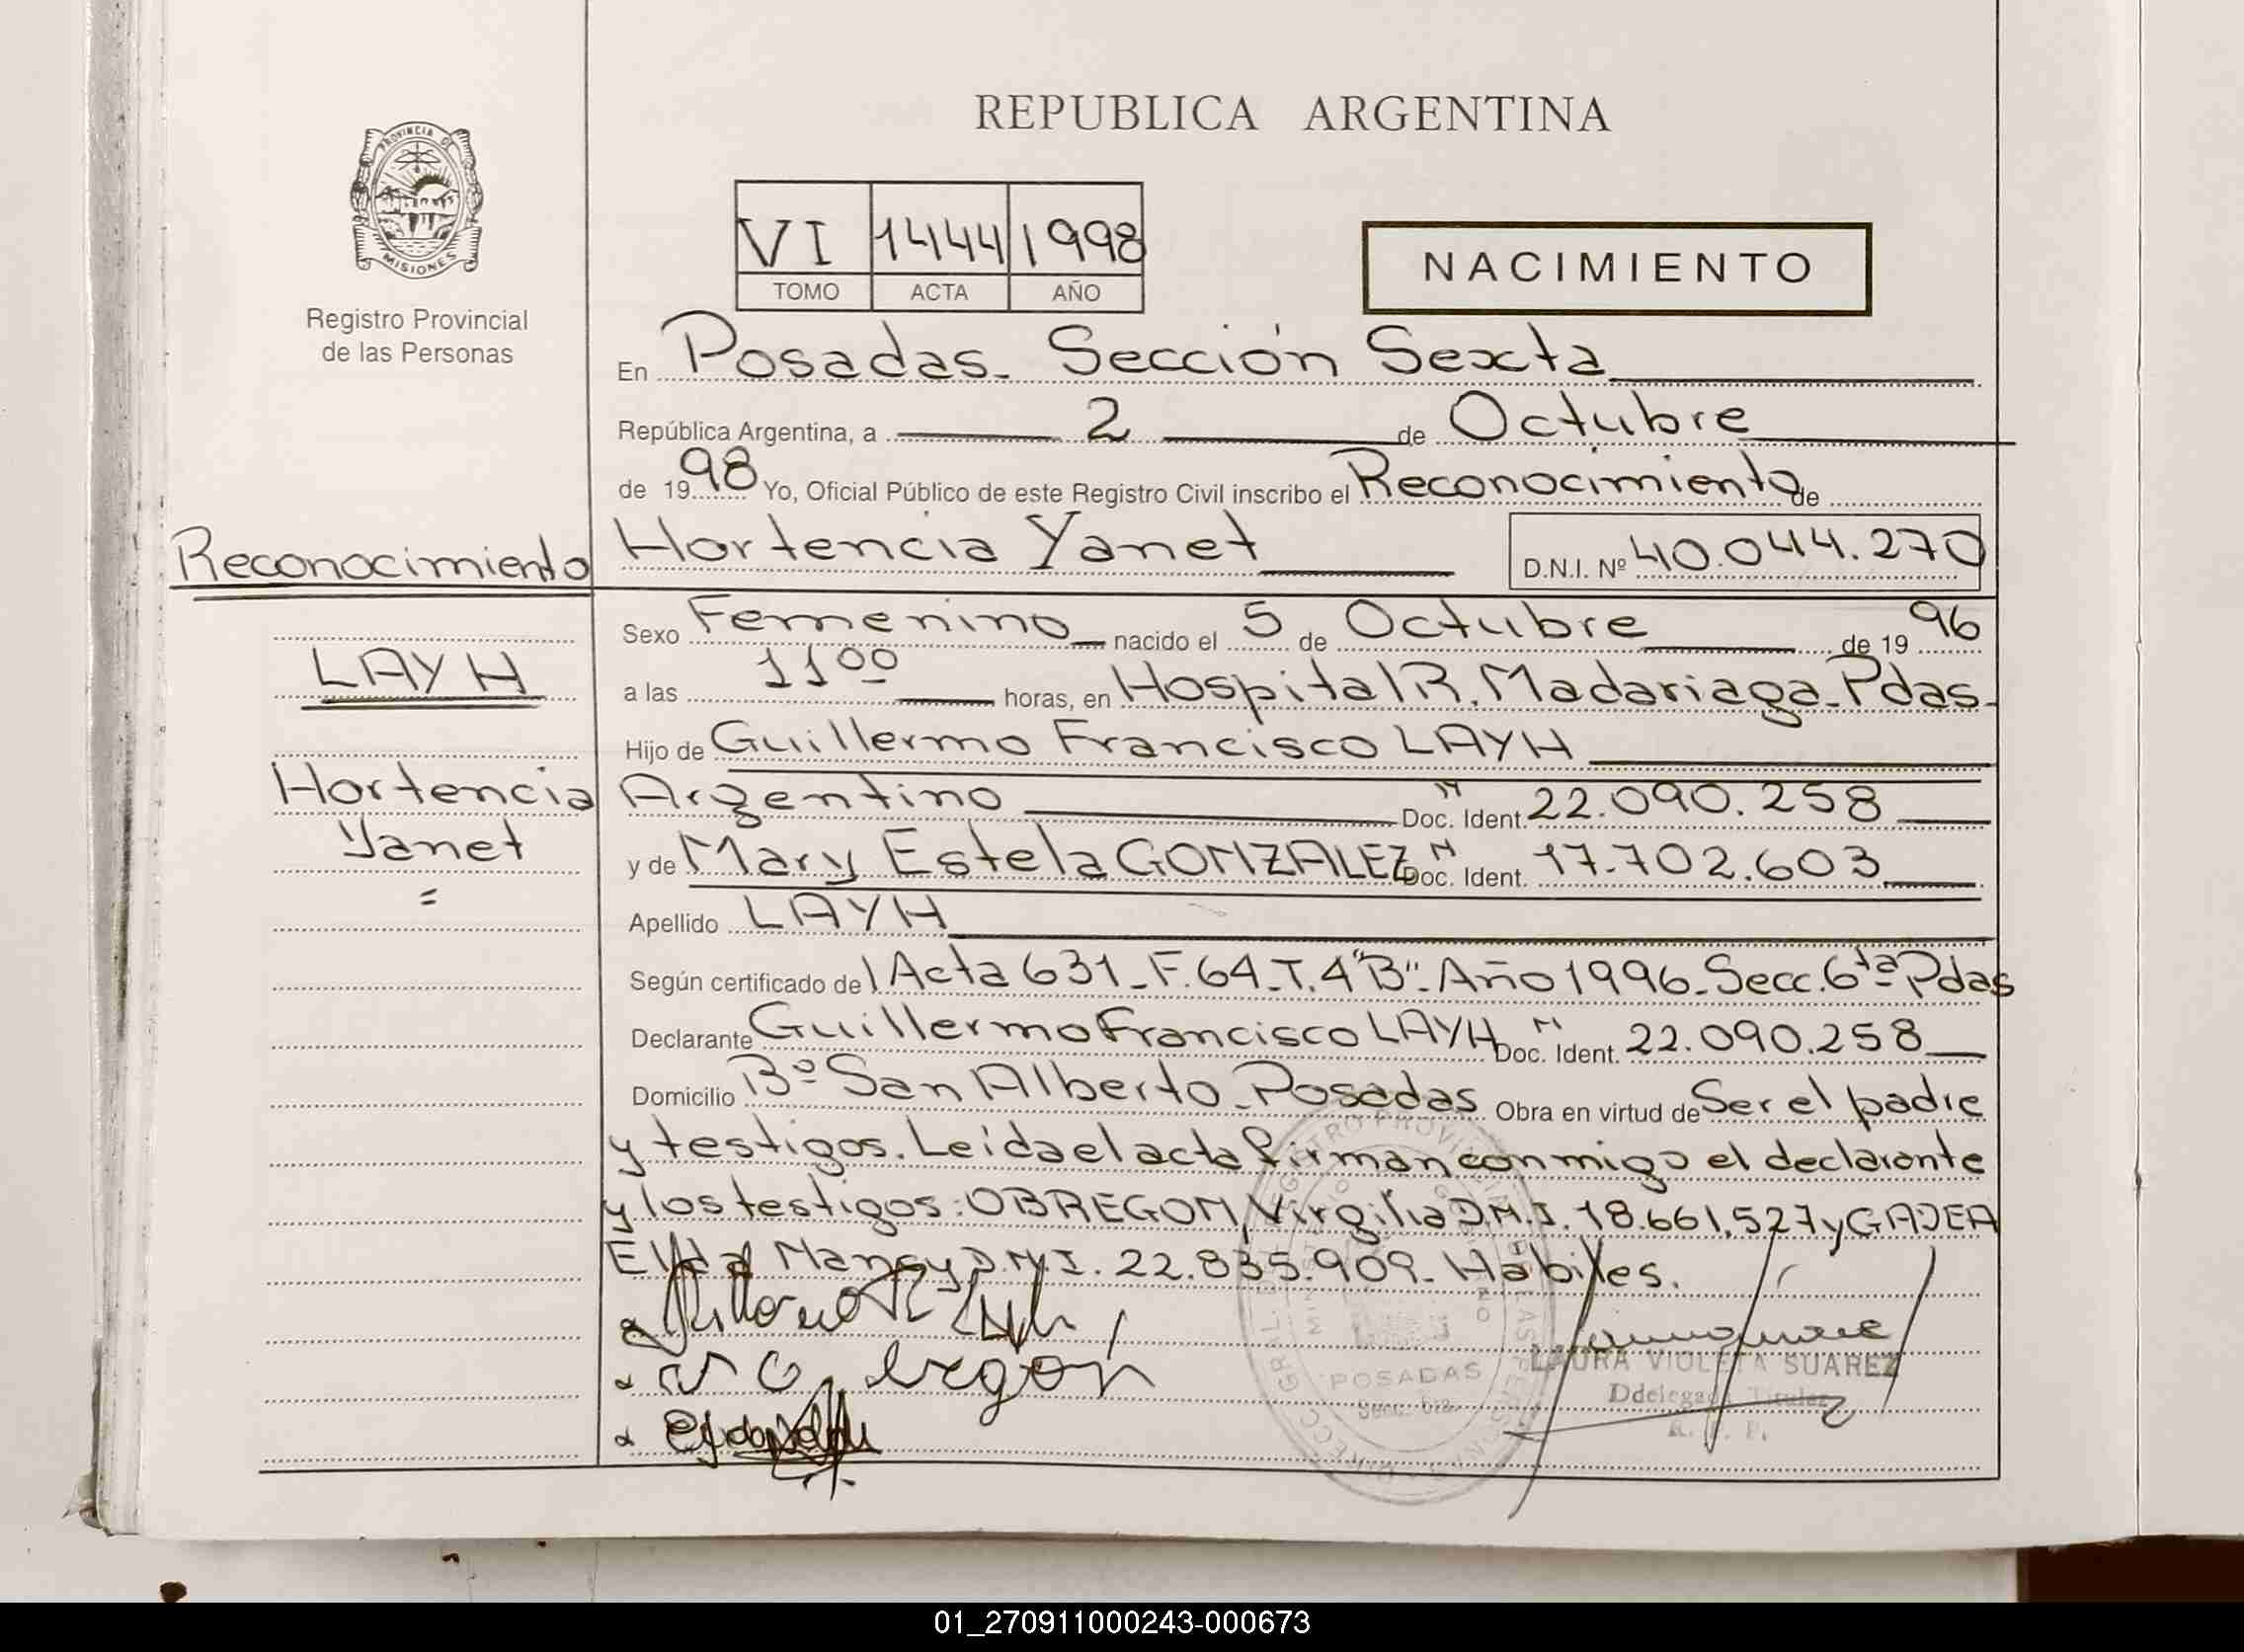 REPUBLICA ARGENTINA
PROVINCIA DE
MISIONES
Registro Provincial
de las Personas
VI 1444 1998
TOMO ACTA AÑO
NACIMIENTO
En Posadas. Sección Sexta
República Argentina, a 2 de Octubre
de 1998 Yo, Oficial Público de este Registro Civil inscribo el Reconocimiento de
Reconocimiento
Hortencia Yanet D.N.I. Nº 40.044.270
Sexo Femenino nacido el 5 de Octubre de 1996
LAYH
a las 11 00 horas, en Hospital R. Madariaga-Pdas-
Hijo de Guillermo Francisco LAYH
Hortencia
Yanet
Argentino N Doc. Ident. 22.090.258
y de Mary Estela GONZALEZ N Doc. Ident. 17.702.603
Apellido LAYH
Según certificado de Acta 631-F.64-T.4"B"-Año 1996-Secc.6ta Pdas
Declarante Guillermo Francisco LAYH N Doc. Ident. 22.090.258
Domicilio Bº San Alberto-Posadas Obra en virtud de Ser el padre
y testigos. Leida el acta firman conmigo el declarante
y los testigos: OBREGON, Virgilia D.N.I. 18.661.527 y GADEA
Elida Nancy D.N.I. 22.835.909- Hábiles.
LAURA VIOLETA SUAREZ
Ddelegada Titular
R. P. P.
POSADAS
Secc. 6ta.
01_270911000243-000673